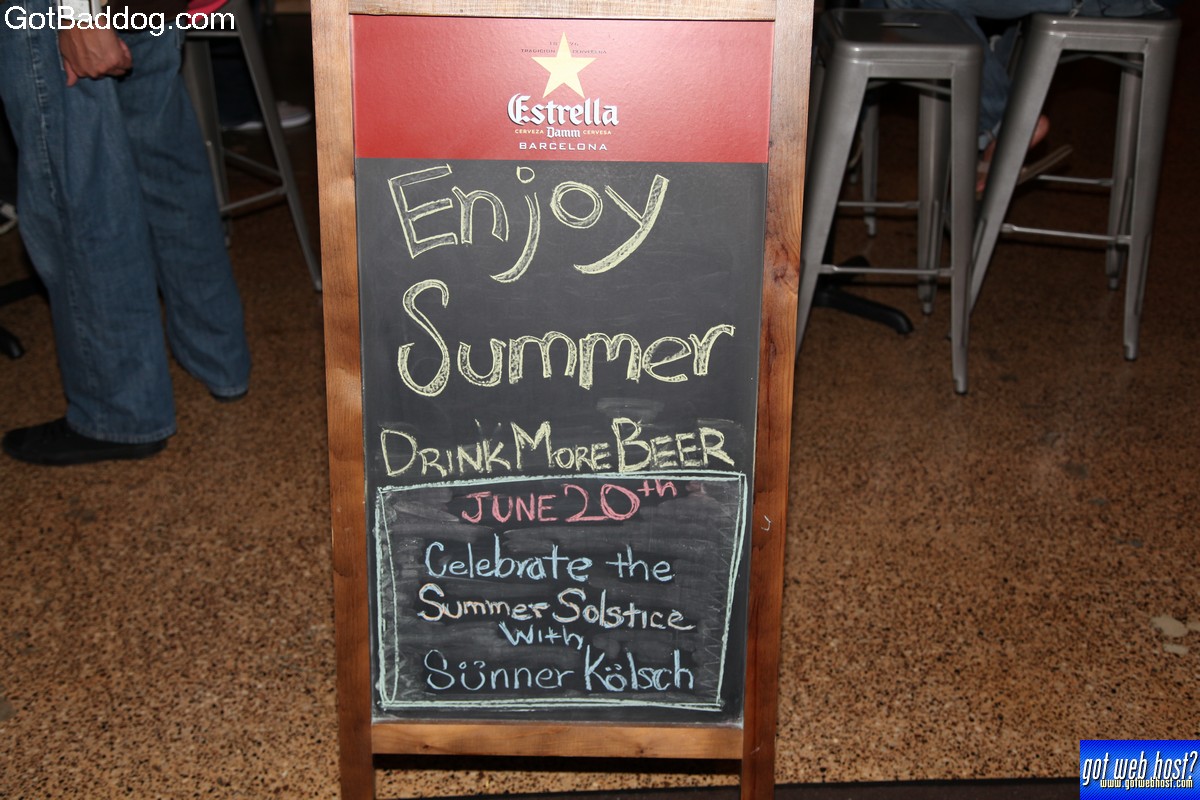 GotBaddog.com
Estrella
CERVEZA Damm CERVESA
BARCELONA
Enjoy
Summer
DRINK MORE BEER
JUNE 20th
Celebrate the
Summer Solstice
with
Sünner Kölsch
got web host?
www.gotwebhost.com